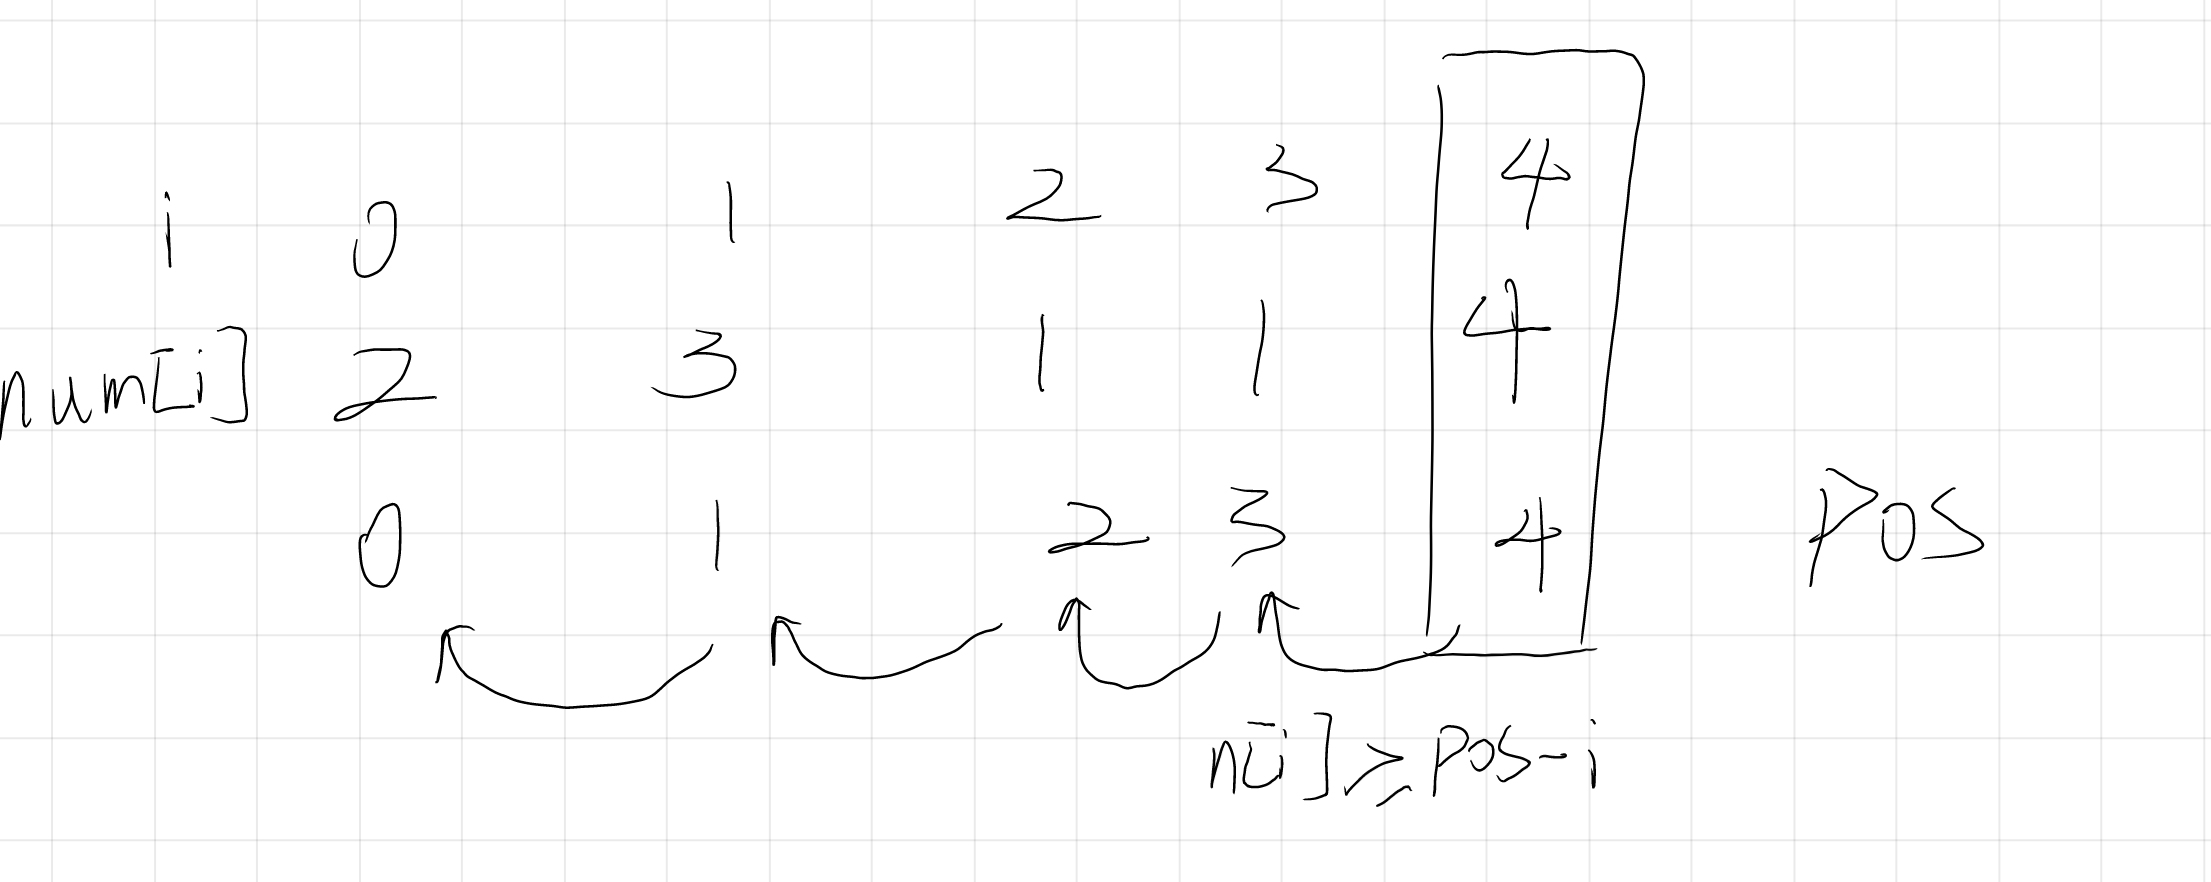 i 0 1 2 3 4
num[i] 2 3 1 1 4
0 1 2 3 4 pos
n[i] ≥ pos-i